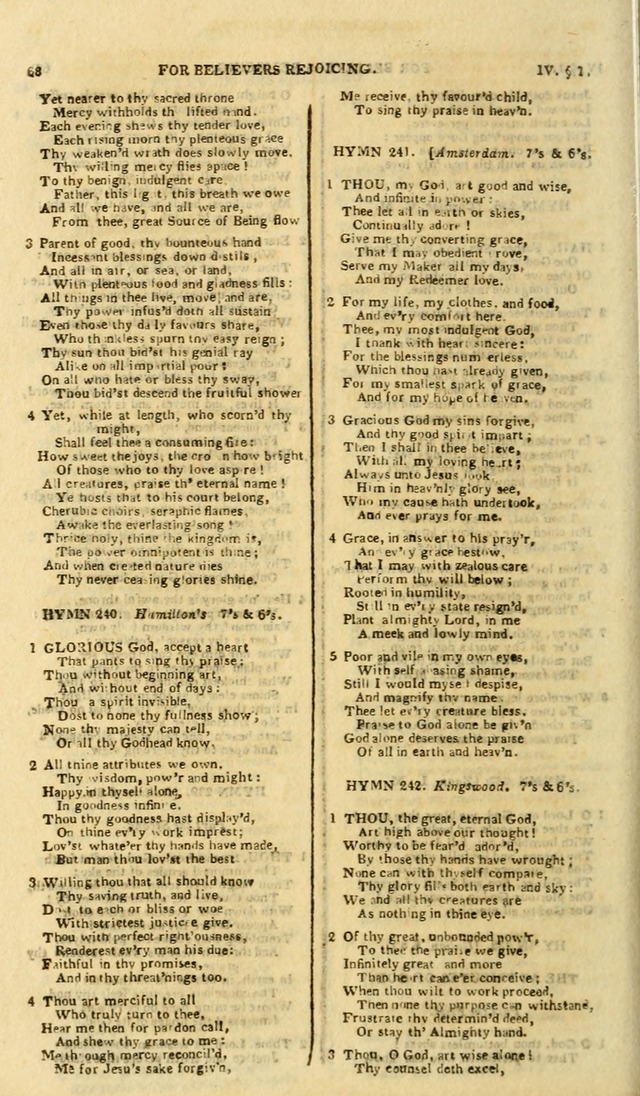 68 FOR BELIEVERS REJOICING. IV. § 1.
Yet nearer to thy sacred throne
Mercy withholds th lifted hand.
Each evening shews thy tender love,
Each rising morn thy plenteous grace
Thy weaken'd wrath does slowly move.
Thy willing mercy flies apace !
To thy benign, indulgent care,
Father, this light, this breath we owe
And all we have, and all we are,
From thee, great Source of Being flow
3 Parent of good, thy bounteous hand
Incessant blessings down distils,
And all in air, or sea, or land,
With plenteous food and gladness fills :
All things in thee live, move, and are,
Thy power infus'd doth all sustain
Even those thy daily favours share,
Who thankless spurn thy easy reign ;
Thy sun thou bid'st his genial ray
Alike on all impartial pour :
On all who hate or bless thy sway,
Thou bid'st descend the fruitful shower
4 Yet, while at length, who scorn'd thy
might,
Shall feel thee a consuming fire :
How sweet the joys, the crown how bright
Of those who to thy love aspire !
All creatures, praise th' eternal name !
Ye hosts that to his court belong,
Cherubic choirs, seraphic flames,
Awake the everlasting song !
Thrice holy, thine the kingdom is,
The power omnipotent is thine ;
And when created nature dies
Thy never ceasing glories shine.
HYMN 240. Hamilton's 7's & 6's.
1 GLORIOUS God, accept a heart
That pants to sing thy praise ;
Thou without beginning art,
And without end of days :
Thou a spirit invisible,
Dost to none thy fullness show ;
None thy majesty can tell,
Or all thy Godhead know.
2 All thine attributes we own.
Thy wisdom, pow'r and might :
Happy in thyself alone,
In goodness infinite.
Thou thy goodness hast display'd,
On thine ev'ry work imprest ;
Lov'st whate'er thy hands have made,
But man thou lov'st the best
3 Willing thou that all should know
Thy saving truth, and live,
Dost to each or bliss or woe
With strictest justice give.
Thou with perfect right'ousness,
Renderest ev'ry man his due :
Faithful in thy promises,
And in thy threat'nings too.
4 Thou art merciful to all
Who truly turn to thee,
Hear me then for pardon call,
And shew thy grace to me :
Me through mercy reconcil'd,
Me for Jesu's sake forgiv'n,
Me receive, thy favour'd child,
To sing thy praise in heav'n.
HYMN 241. [Amsterdam. 7's & 6's.
1 THOU, my God, art good and wise,
And infinite in power :
Thee let all in earth or skies,
Continually adore !
Give me thy converting grace,
That I may obedient prove,
Serve my Maker all my days,
And my Redeemer love.
2 For my life, my clothes, and food,
And ev'ry comfort here.
Thee, my most indulgent God,
I thank with heart sincere :
For the blessings numberless,
Which thou hast already given,
For my smallest spark of grace,
And for my hope of heaven.
3 Gracious God my sins forgive,
And thy good spirit impart ;
Then I shall in thee believe,
With all my loving heart ;
Always unto Jesus look
Him in heav'nly glory see,
Who my cause hath undertook,
And ever prays for me.
4 Grace, in answer to his pray'r,
And ev'ry grace bestow,
That I may with zealous care
Perform thy will below ;
Rooted in humility,
Still in ev'ry state resign'd,
Plant almighty Lord, in me
A meek and lowly mind.
5 Poor and vile in my own eyes,
With self abasing shame,
Still I would myself despise,
And magnify thy name
Thee let ev'ry creature bless.
Praise to God alone be giv'n
God alone deserves the praise
Of all in earth and heav'n.
HYMN 242. Kingswood. 7's & 6's.
1 THOU, the great, eternal God,
Art high above our thought !
Worthy to be fear'd ador'd,
By those thy hands have wrought ;
None can with thyself compare,
Thy glory fills both earth and sky :
We and all thy creatures are
As nothing in thine eye.
2 Of thy great, unbounded pow'r,
To thee the praise we give,
Infinitely great and more
Than heart can e'er conceive ;
When thou wilt to work proceed,
Then none thy purpose can withstand,
Frustrate thy determin'd deed,
Or stay th' Almighty hand.
3 Thou, O God, art wise alone !
Thy counsel doth excel,